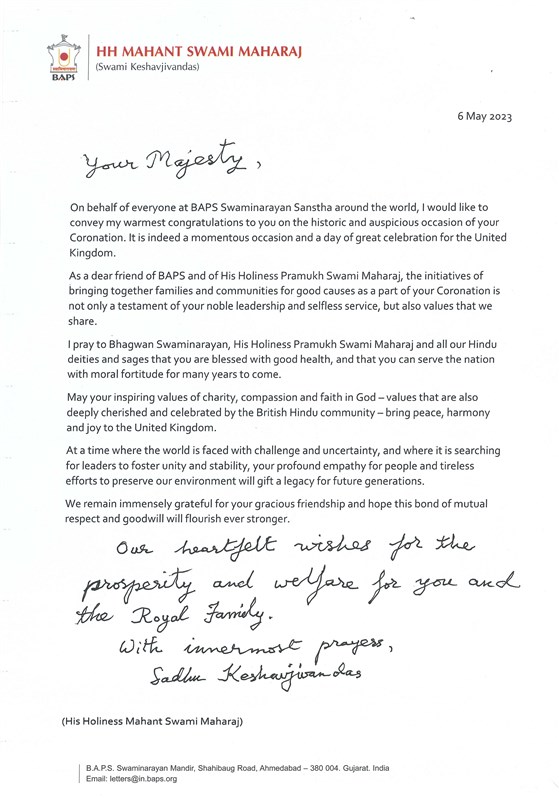 HH MAHANT SWAMI MAHARAJ
(Swami Keshavjivandas)
BAPS
6 May 2023
Your Majesty,
On behalf of everyone at BAPS Swaminarayan Sanstha around the world, I would like to
convey my warmest congratulations to you on the historic and auspicious occasion of your
Coronation. It is indeed a momentous occasion and a day of great celebration for the United
Kingdom.
As a dear friend of BAPS and of His Holiness Pramukh Swami Maharaj, the initiatives of
bringing together families and communities for good causes as a part of your Coronation is
not only a testament of your noble leadership and selfless service, but also values that we
share.
I pray to Bhagwan Swaminarayan, His Holiness Pramukh Swami Maharaj and all our Hindu
deities and sages that you are blessed with good health, and that you can serve the nation
with moral fortitude for many years to come.
May your inspiring values of charity, compassion and faith in God – values that are also
deeply cherished and celebrated by the British Hindu community – bring peace, harmony
and joy to the United Kingdom.
At a time where the world is faced with challenge and uncertainty, and where it is searching
for leaders to foster unity and stability, your profound empathy for people and tireless
efforts to preserve our environment will gift a legacy for future generations.
We remain immensely grateful for your gracious friendship and hope this bond of mutual
respect and goodwill will flourish ever stronger.
Our heartfelt wishes for the
prosperity and welfare for you and
the Royal Family.
With innermost prayers,
Sadhu Keshavjivandas
(His Holiness Mahant Swami Maharaj)
B.A.P.S. Swaminarayan Mandir, Shahibaug Road, Ahmedabad – 380 004. Gujarat. India
Email: letters@in.baps.org